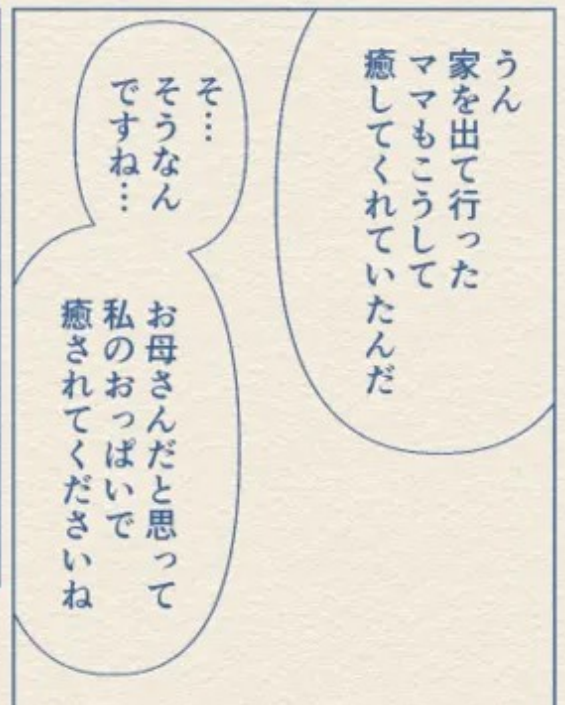 うん
家を出て行った
ママもこうして
癒してくれていたんだ
そ…
そうなん
ですね…
お母さんだと思って
私のおっぱいで
癒されてくださいね